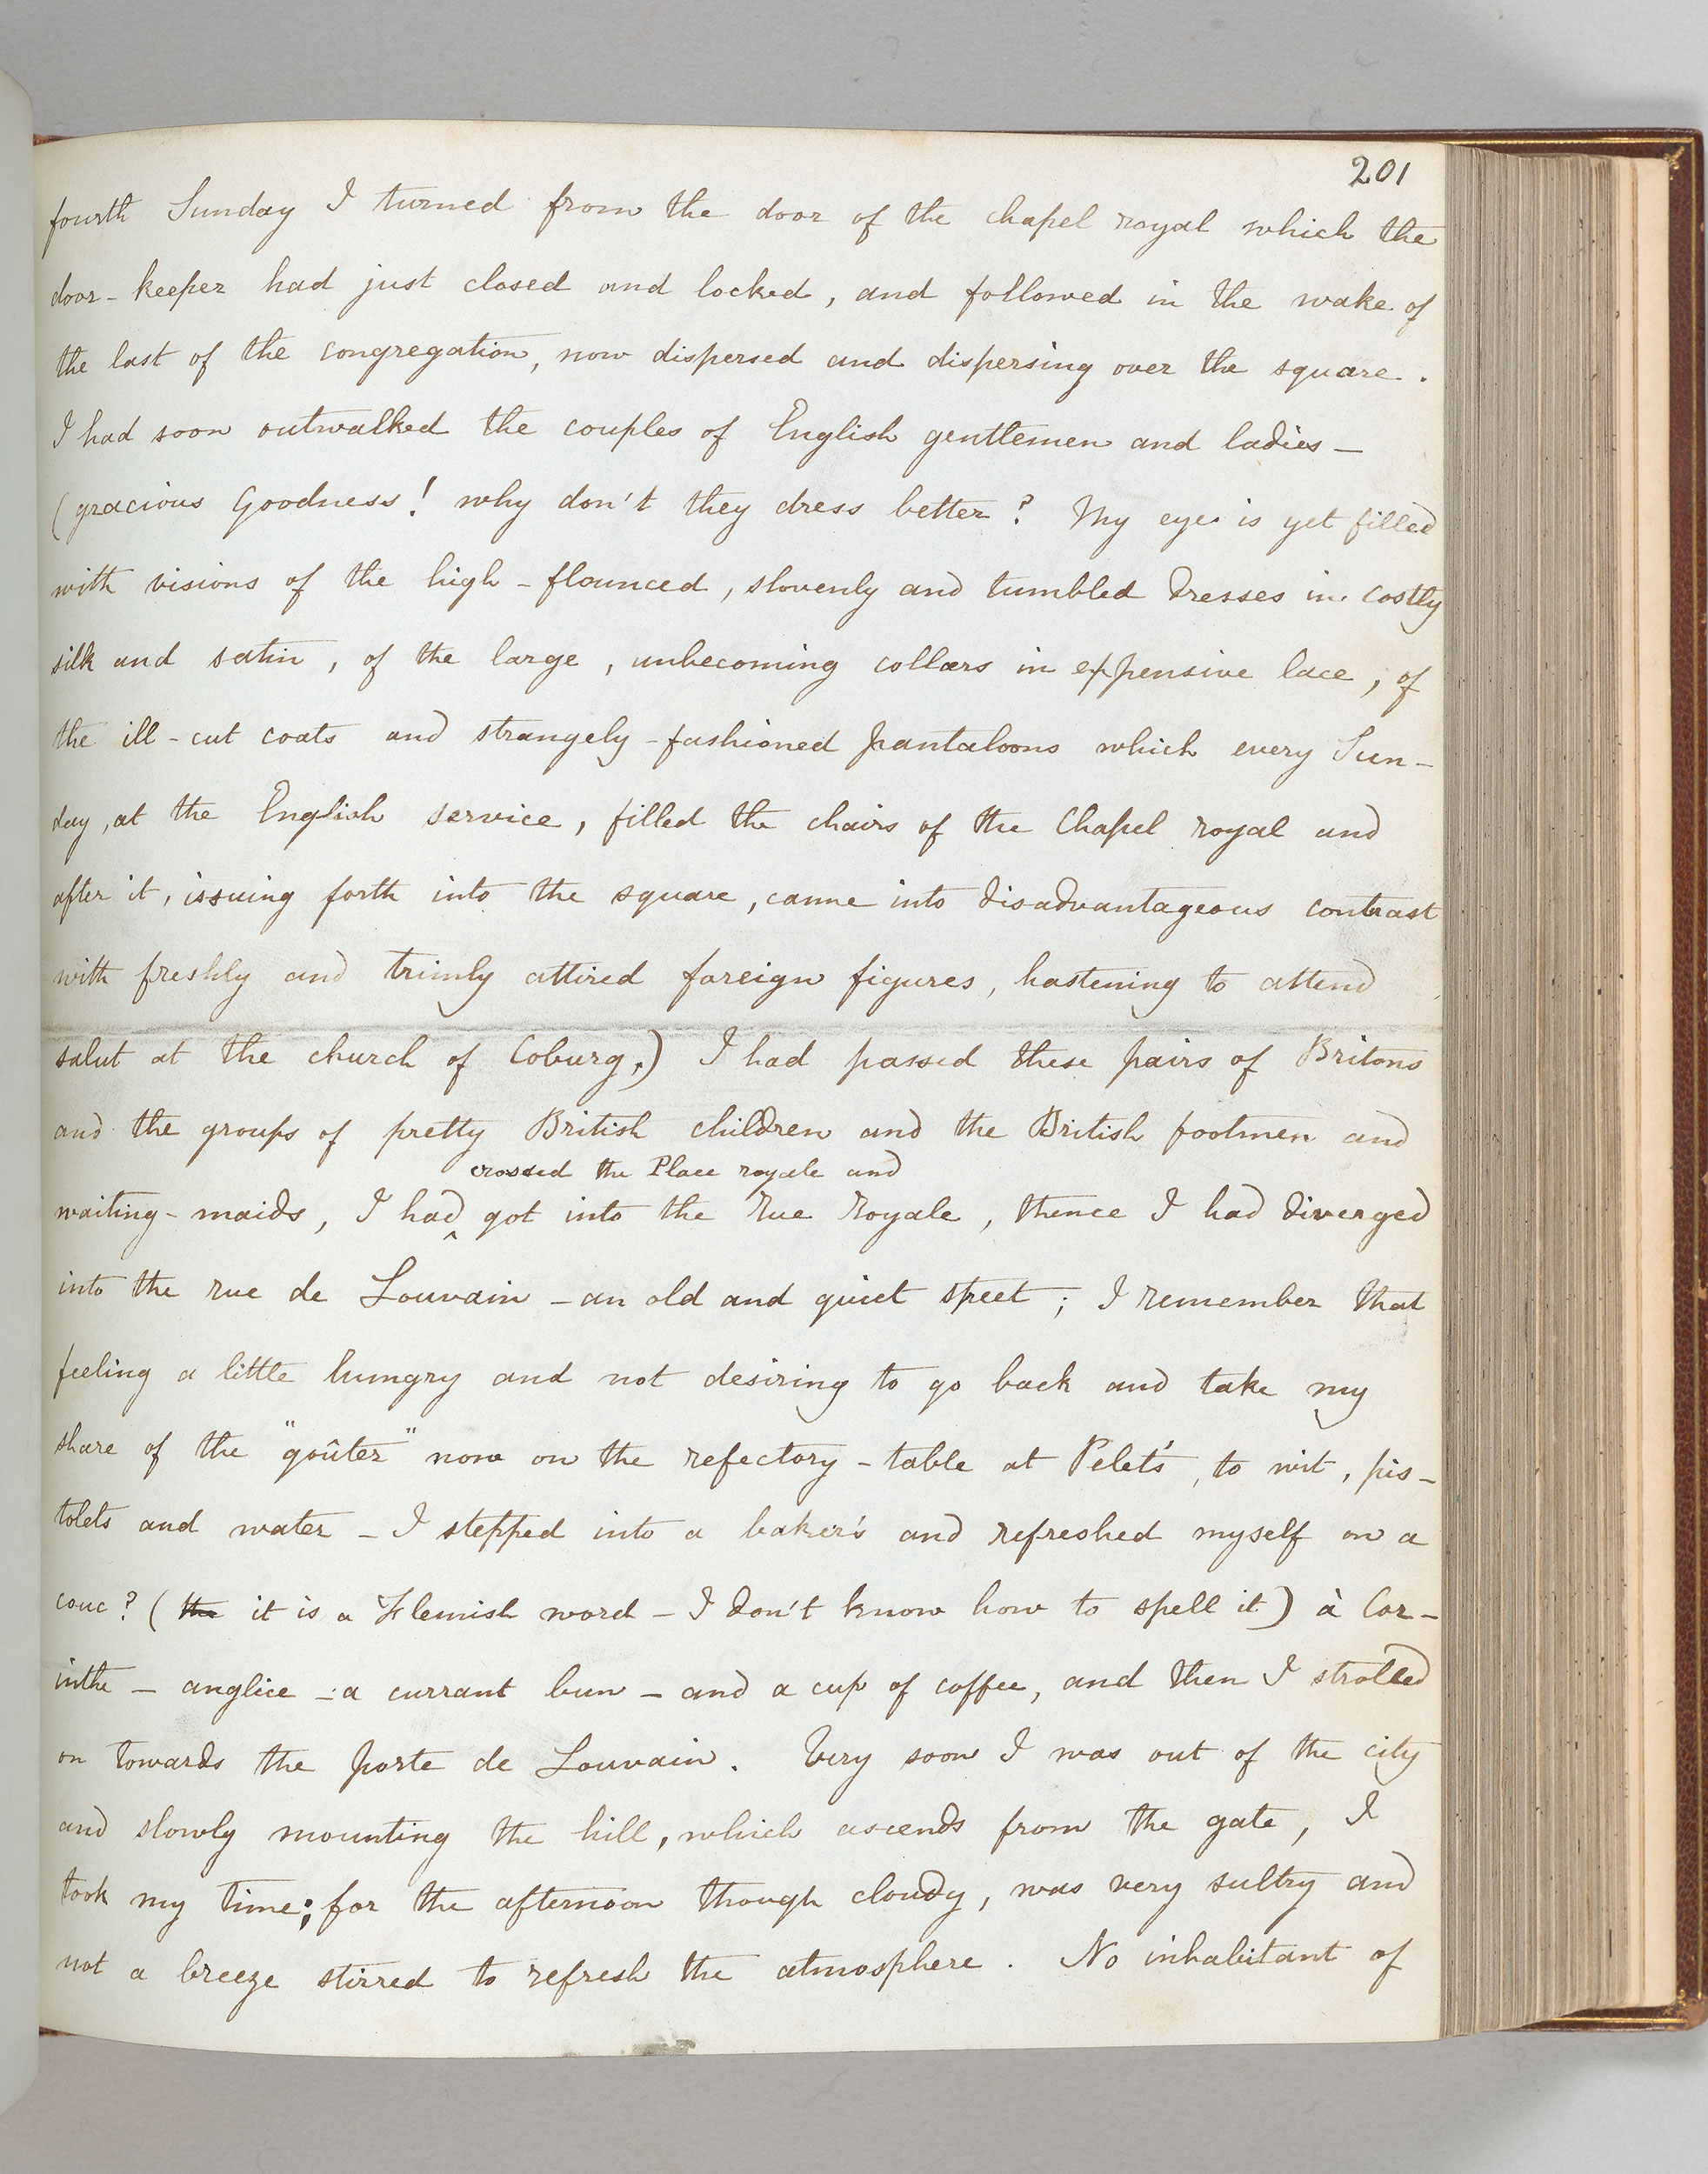 201
fourth Sunday I turned from the door of the chapel royal which the
door-keeper had just closed and locked, and followed in the wake of
the last of the congregation, now dispersed and dispersing over the square.
I had soon outwalked the couples of English gentlemen and ladies –
(gracious Goodness! why don't they dress better? My eye is yet filled
with visions of the high-flounced, slovenly and tumbled dresses in costly
silk and satin, of the large, unbecoming collars in expensive lace, of
the ill-cut coats and strangely-fashioned pantaloons which every Sun-
day, at the English service, filled the chairs of the Chapel royal and
after it, issuing forth into the square, came into disadvantageous contrast
with freshly and trimly attired foreign figures, hastening to attend
salut at the church of Coburg.) I had passed these pairs of Britons
and the groups of pretty British children and the British footmen and
crossed the Place royale and
waiting-maids, I had ‸ got into the Rue Royale, thence I had diverged
into the rue de Louvain – an old and quiet street; I remember that
feeling a little hungry and not desiring to go back and take my
share of the "goûter" now on the refectory-table at Pelet's, to wit, pis-
tolets and water – I stepped into a baker's and refreshed myself on a
couc? (the it is a Flemish word – I don't know how to spell it) à Cor-
inthe – anglice – a currant bun – and a cup of coffee, and then I strolled
on towards the porte de Louvain. Very soon I was out of the city
and slowly mounting the hill, which ascends from the gate, I
took my time; for the afternoon though cloudy, was very sultry and
not a breeze stirred to refresh the atmosphere. No inhabitant of